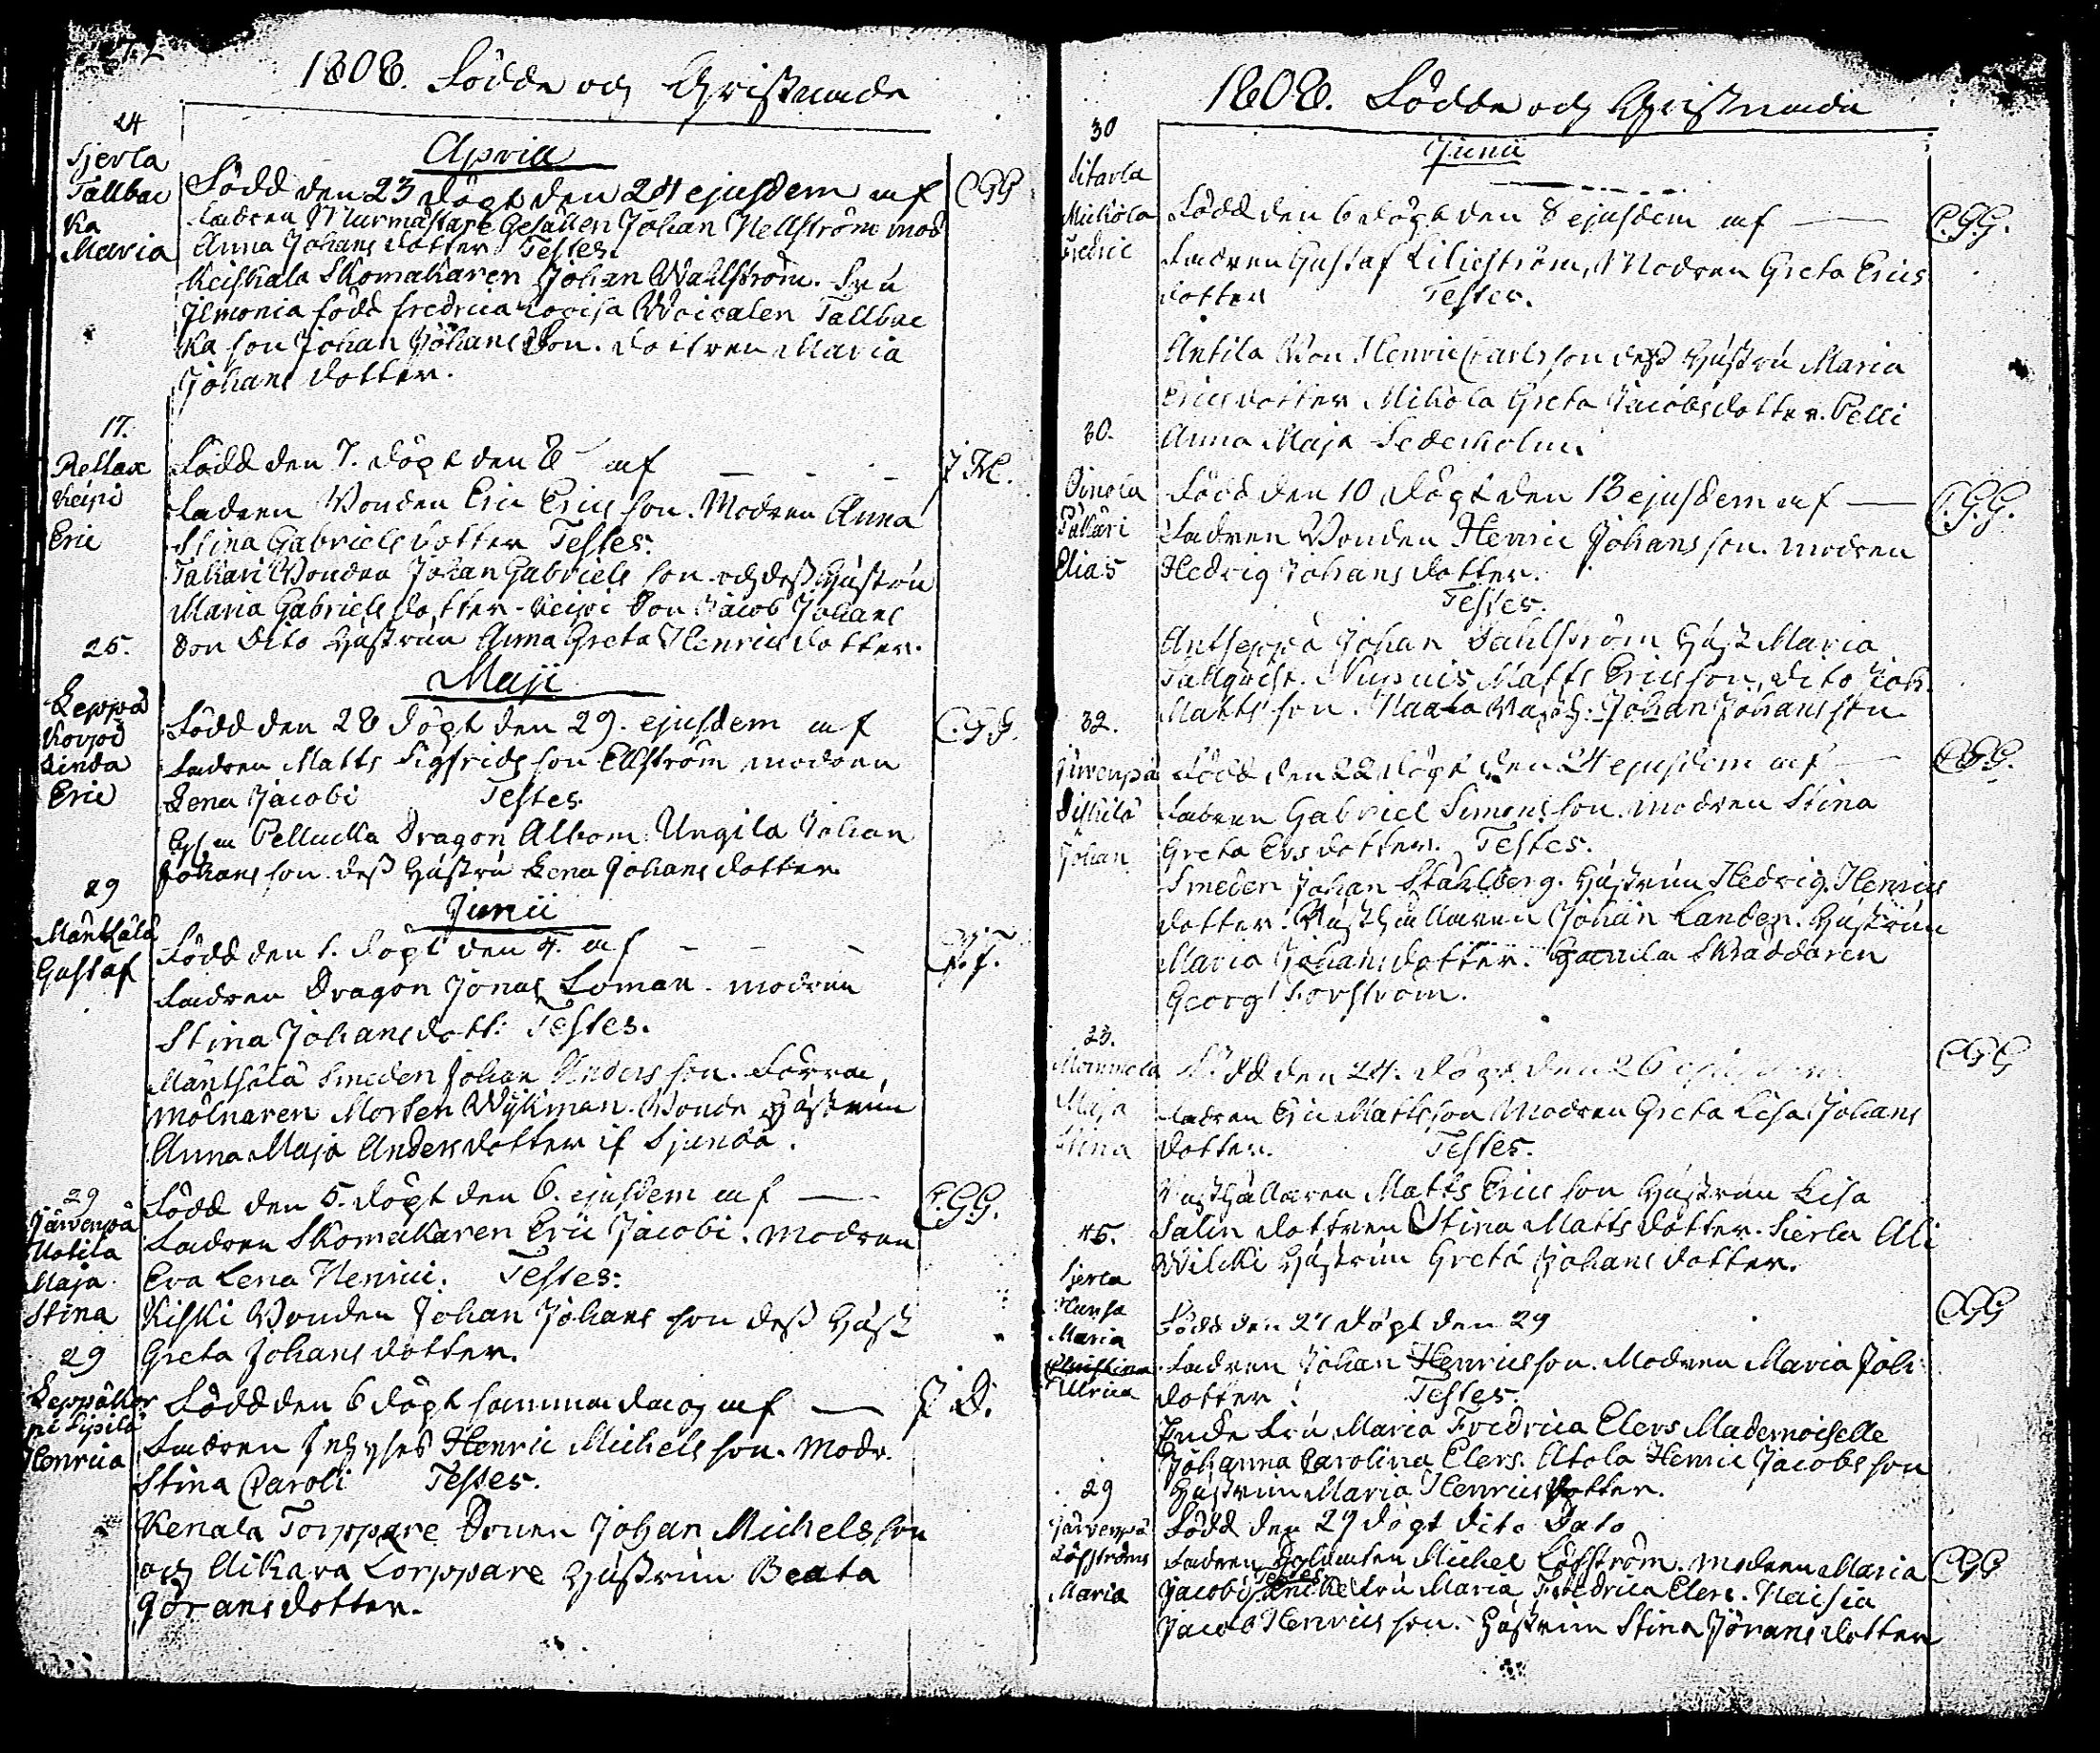 1808. Födde och Christnade
April
24
Sjerla
Tallbac
ka
Maria
Född den 23 döpt den 24 ejusdem af
CGG
Fadren Murmästare Gesällen Johan Hellström mod
Anna Johans dotter Testes.
Keiskala Skomakaren Johan Wahlström. Fru
född Fredrica Lovisa Tallbac
ka son Johan Johans Son. dottren Maria
Johans dotter.
17.
Rellax
Keipi
Eric
Född den 7. döpt den 8 af
Fadren Bonden Eric Erics son. Modren Anna
Stina Gabriels dotter Testes.
Takari Bonden Johan Gabriels son och dess Hustru
Maria Gabriels dotter. Keipi Son Jacob Johans
Son dito Hustrun Anna Greta Henrics dotter.
Maji
25.
Leppä
Korpi
Linda
Eric
Född den 28 döpt den 29. ejusdem af
C.GG.
Fadren Matts Sigfrids son Ellström modren
Lena Jacobi Testes
Dragon Albom Ungila Johan
Johans son dess Hustru Lena Johans dotter
Junii
29
Mäntsälä
Gustaf
Född den 1. döpt den 4. af
Fadren Dragon Jonas Loman. modren
Stina Johans dott: Testes.
Mäntsälä Smeden Johan Anders son. Forra
Mölnaren Morten Wykman. Bonde Hustrun
Anna Maja Anders dotter if Sjundå.
29
Järvenpä
Uotila
Maja
Stina
Född den 5. döpt den 6. ejusdem af
C.GG.
Fadren Skomakaren Eric Jacobi. modren
Eva Lena Henrici. Testes:
Kiski Bonden Johan Johans son dess Hust
Greta Johans dotter.
29
Leppälkor
pi Sipilä
Henrica
Född den 6 döpt samma dag af
Fadren Inhyses Henric Michels son. Modr.
Stina Caroli Testes.
Kenala Torppare Sonen Johan Michels son
och Aikara Torppare Hustrun Beata
Görans dotter.
1808. Födde och Christnade
Junii
30
Sitarla
Mickola
Fredric
Född den 6 döpt den 8 ejusdem af
C.GG.
Fadren Gustaf Liljeström, Modren Greta Erics
dotter Testes.
Antila Bon Henric Carls son dess Hustru Maria
Erics dotter Mikola Greta Jacobs dotter. Pelli
Anna Maja Sederholm.
30.
Tallari
Elias
Född den 10 döpt den 13 ejusdem af
C.GG.
Fadren Bonden Henric Johans son. modren
Hedvig Johans dotter.
Testes.
Antseppä Johan Dahlström Hust Maria
Tallqvist. Nummis Matts Erics son, dito Joh.
Matts son. Johan Johans son
32.
Järvenpä
Johan
Född den 22 döpt den 24 ejusdem af
CGG.
Fadren Gabriel Simons son. modren Stina
Greta Ers dotter. Testes.
Smeden Johan Stahlberg. Hustrun Hedvig Henrics
dotter. Johan Landen. Hustrun
Maria Johans dotter. Skraddaren
Georg Forström.
23.
Mommola
Maja
Stina
Född den 24. döpt den 26
CGG
Fadren Eric Matts son Modren Greta Lisa Johans
dotter. Testes.
Matts Erics son Hustrun Lisa
Salin dottren Stina Matts dotter. Sierla Ali
Wilcki Hustrun Greta Johans dotter.
45.
Sjerla
Hansa
Maria
Christina
Ulrica
Född den 27 döpt den 29
CGG
Fadren Johan Henrics son. Modren Maria Joh:
dotter. Testes.
Fru Maria Fredrica Elers Mademoiselle
Johanna Carolina Elers. Atola Henric Jacobs son
Hustrun Maria Henrics dotter.
29
Järvenpä
Löfströms
Maria
Född den 29 döpt dito Dato
Fadren Soldaten Michel Löfström. modren Maria
CGG
Testes
Jacobi Enke Fru Maria Fredrica Elers. Naisia
Jacob Henrics son. Hustrun Stina Jörans dotter